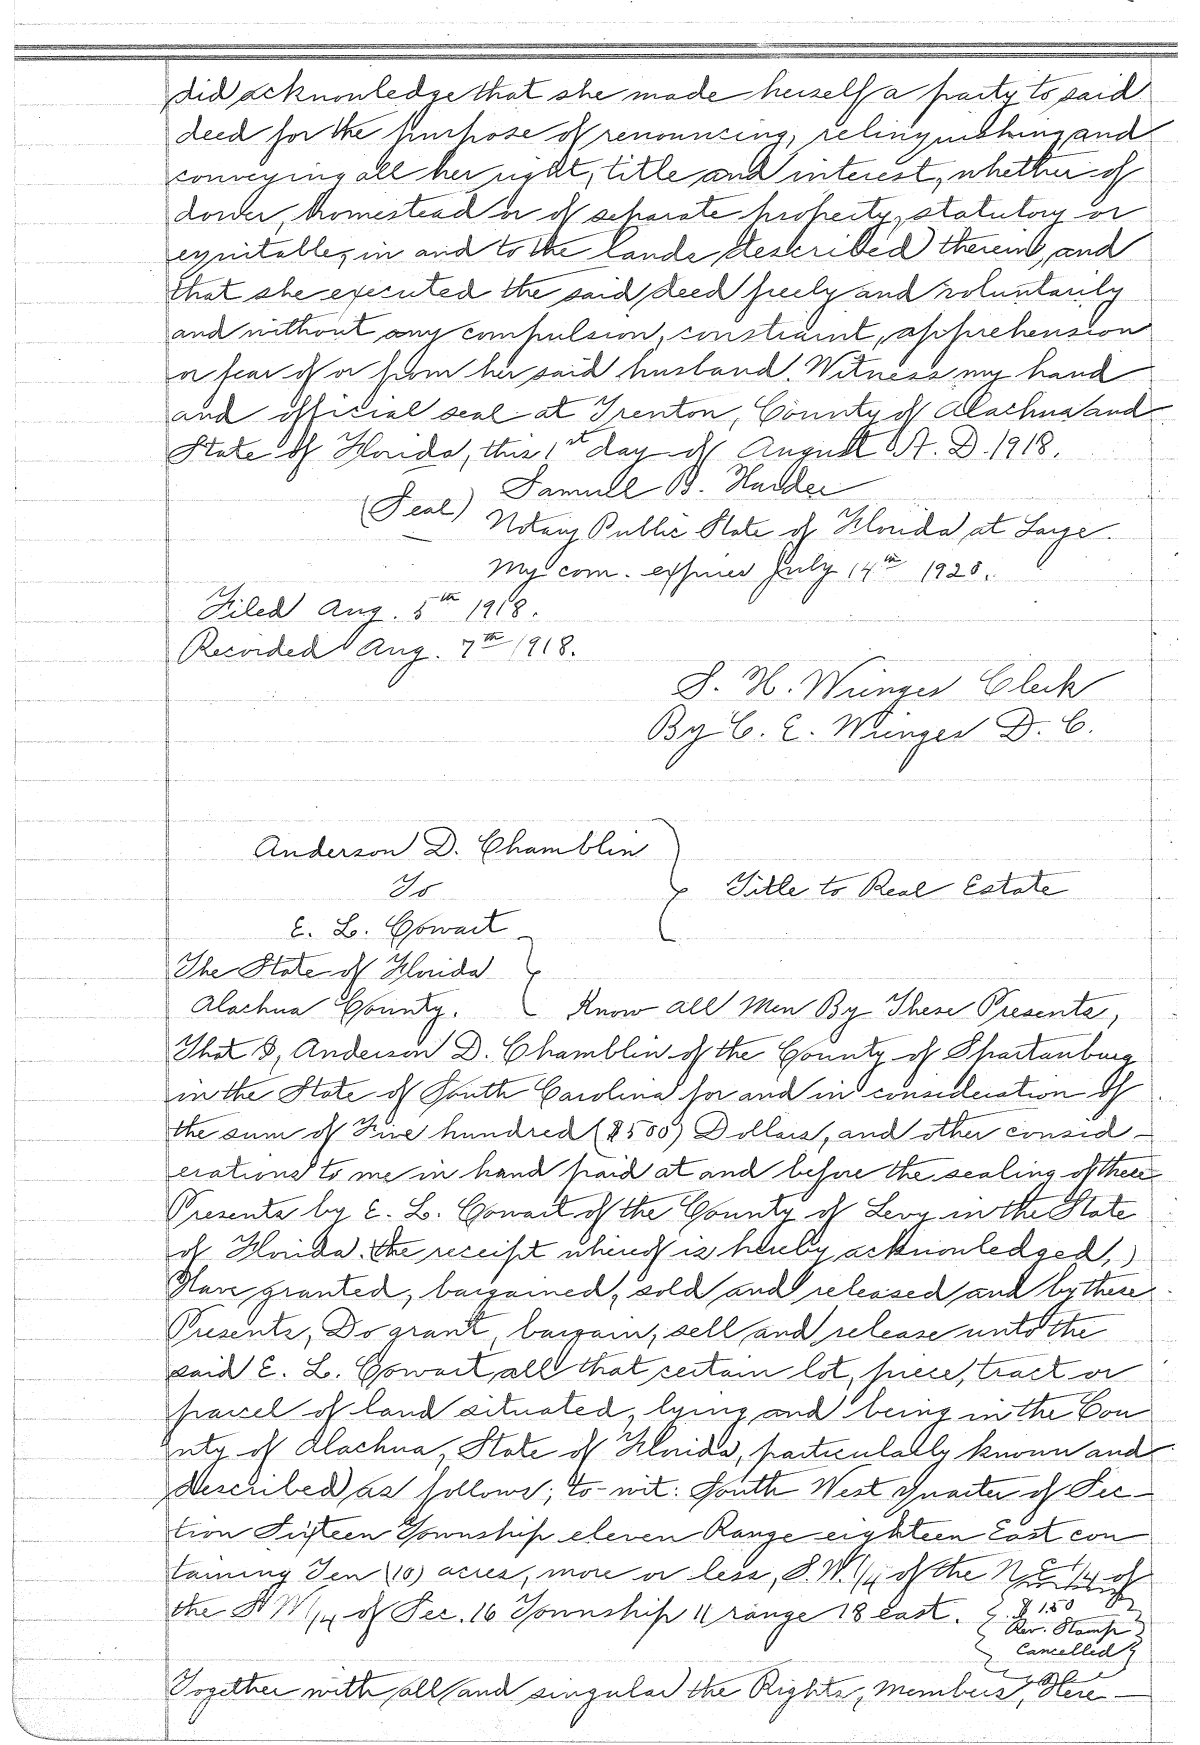 did acknowledge that she made herself a party to said
deed for the purpose of renouncing, relinquishing and
conveying all her right, title and interest, whether of
dower, homestead or of separate property, statutory or
equitable, in and to the lands described therein, and
that she executed the said deed freely and voluntarily
and without any compulsion, constraint, apprehension
or fear of or from her said husband. Witness my hand
and official seal at Trenton, County of Alachua and
State of Florida, this 1st day of August A. D. 1918.
Samuel B. Harder
(Seal) Notary Public State of Florida at Large.
My com. expires July 14th 1920.
Filed Aug. 5th 1918.
Recorded Aug. 7th 1918.
S. H. Wienges Clerk
By C. E. Wienges D. C.
Anderson D. Chamblin
To
Title to Real Estate
E. L. Cowart
The State of Florida
Alachua County. Know all Men By These Presents,
That I, Anderson D. Chamblin of the County of Spartanburg
in the State of South Carolina for and in consideration of
the sum of Five hundred ($500) Dollars, and other consid-
erations to me in hand paid at and before the sealing of these
Presents by E. L. Cowart of the County of Levy in the State
of Florida (the receipt whereof is hereby acknowledged,)
Have granted, bargained, sold and released and by these
Presents, Do grant, bargain, sell and release unto the
said E. L. Cowart all that certain lot, piece, tract or
parcel of land situated, lying and being in the Cou
nty of Alachua, State of Florida, particularly known and
described as follows; to-wit: South West quarter of Sec-
tion Sixteen Township eleven Range eighteen East con
taining Ten (10) acres, more or less, S.W. 1/4 of the N E 1/4 of
the S W 1/4 of Sec. 16 Township 11 range 18 east.
$1.50
Rev. Stamp
Cancelled
Together with all and singular the Rights, Members, Here-